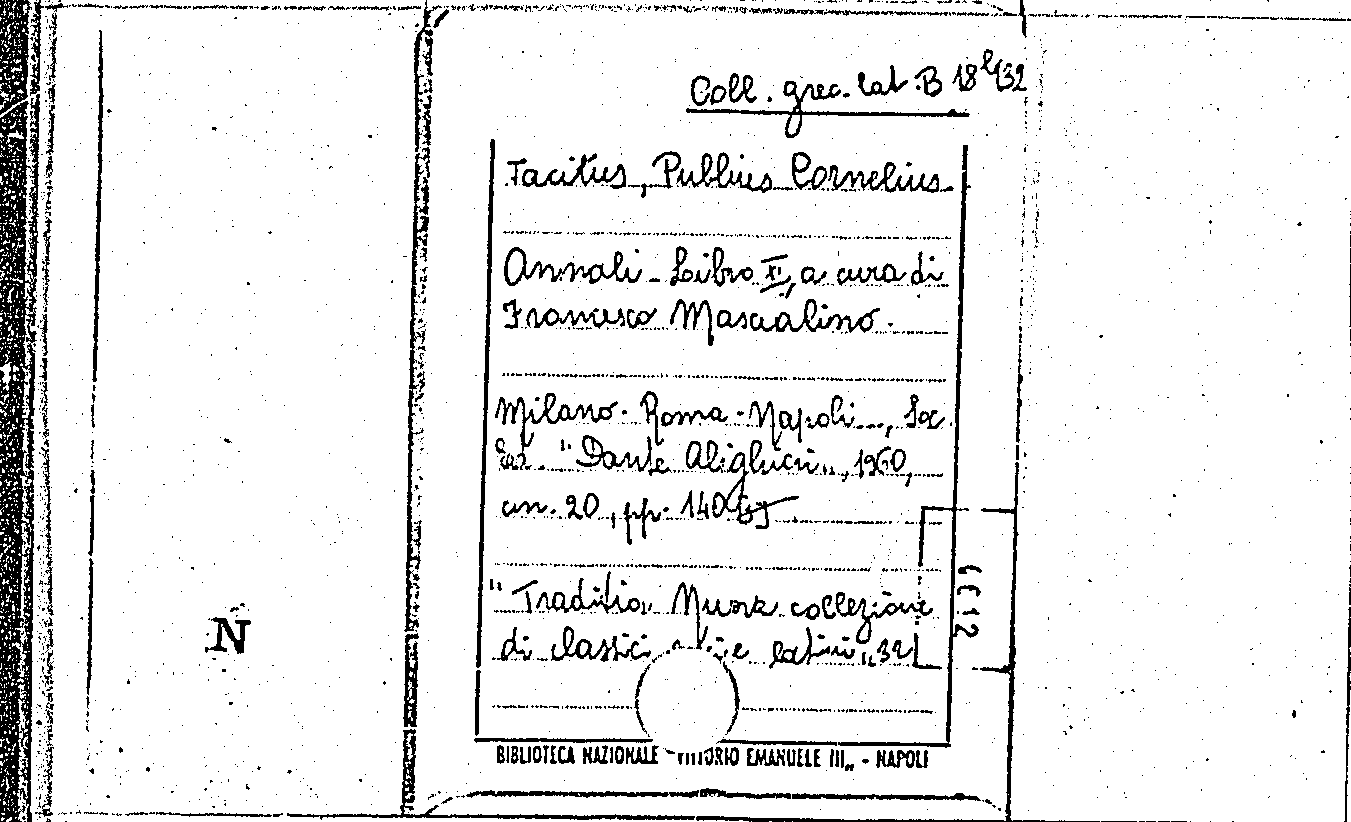 Coll. grec. lat. B 18 132
Tacitus, Publius Cornelius.
Annali - Libro XI, a cura di
Francesco Mascialino.
Milano - Roma - Napoli..., Soc.
Ed. "Dante Alighieri", 1960,
cm. 20, pp. 140
"Traditio. Nuova collezione
di classici e latini" 32
N
BIBLIOTECA NAZIONALE "VITTORIO EMANUELE III" - NAPOLI